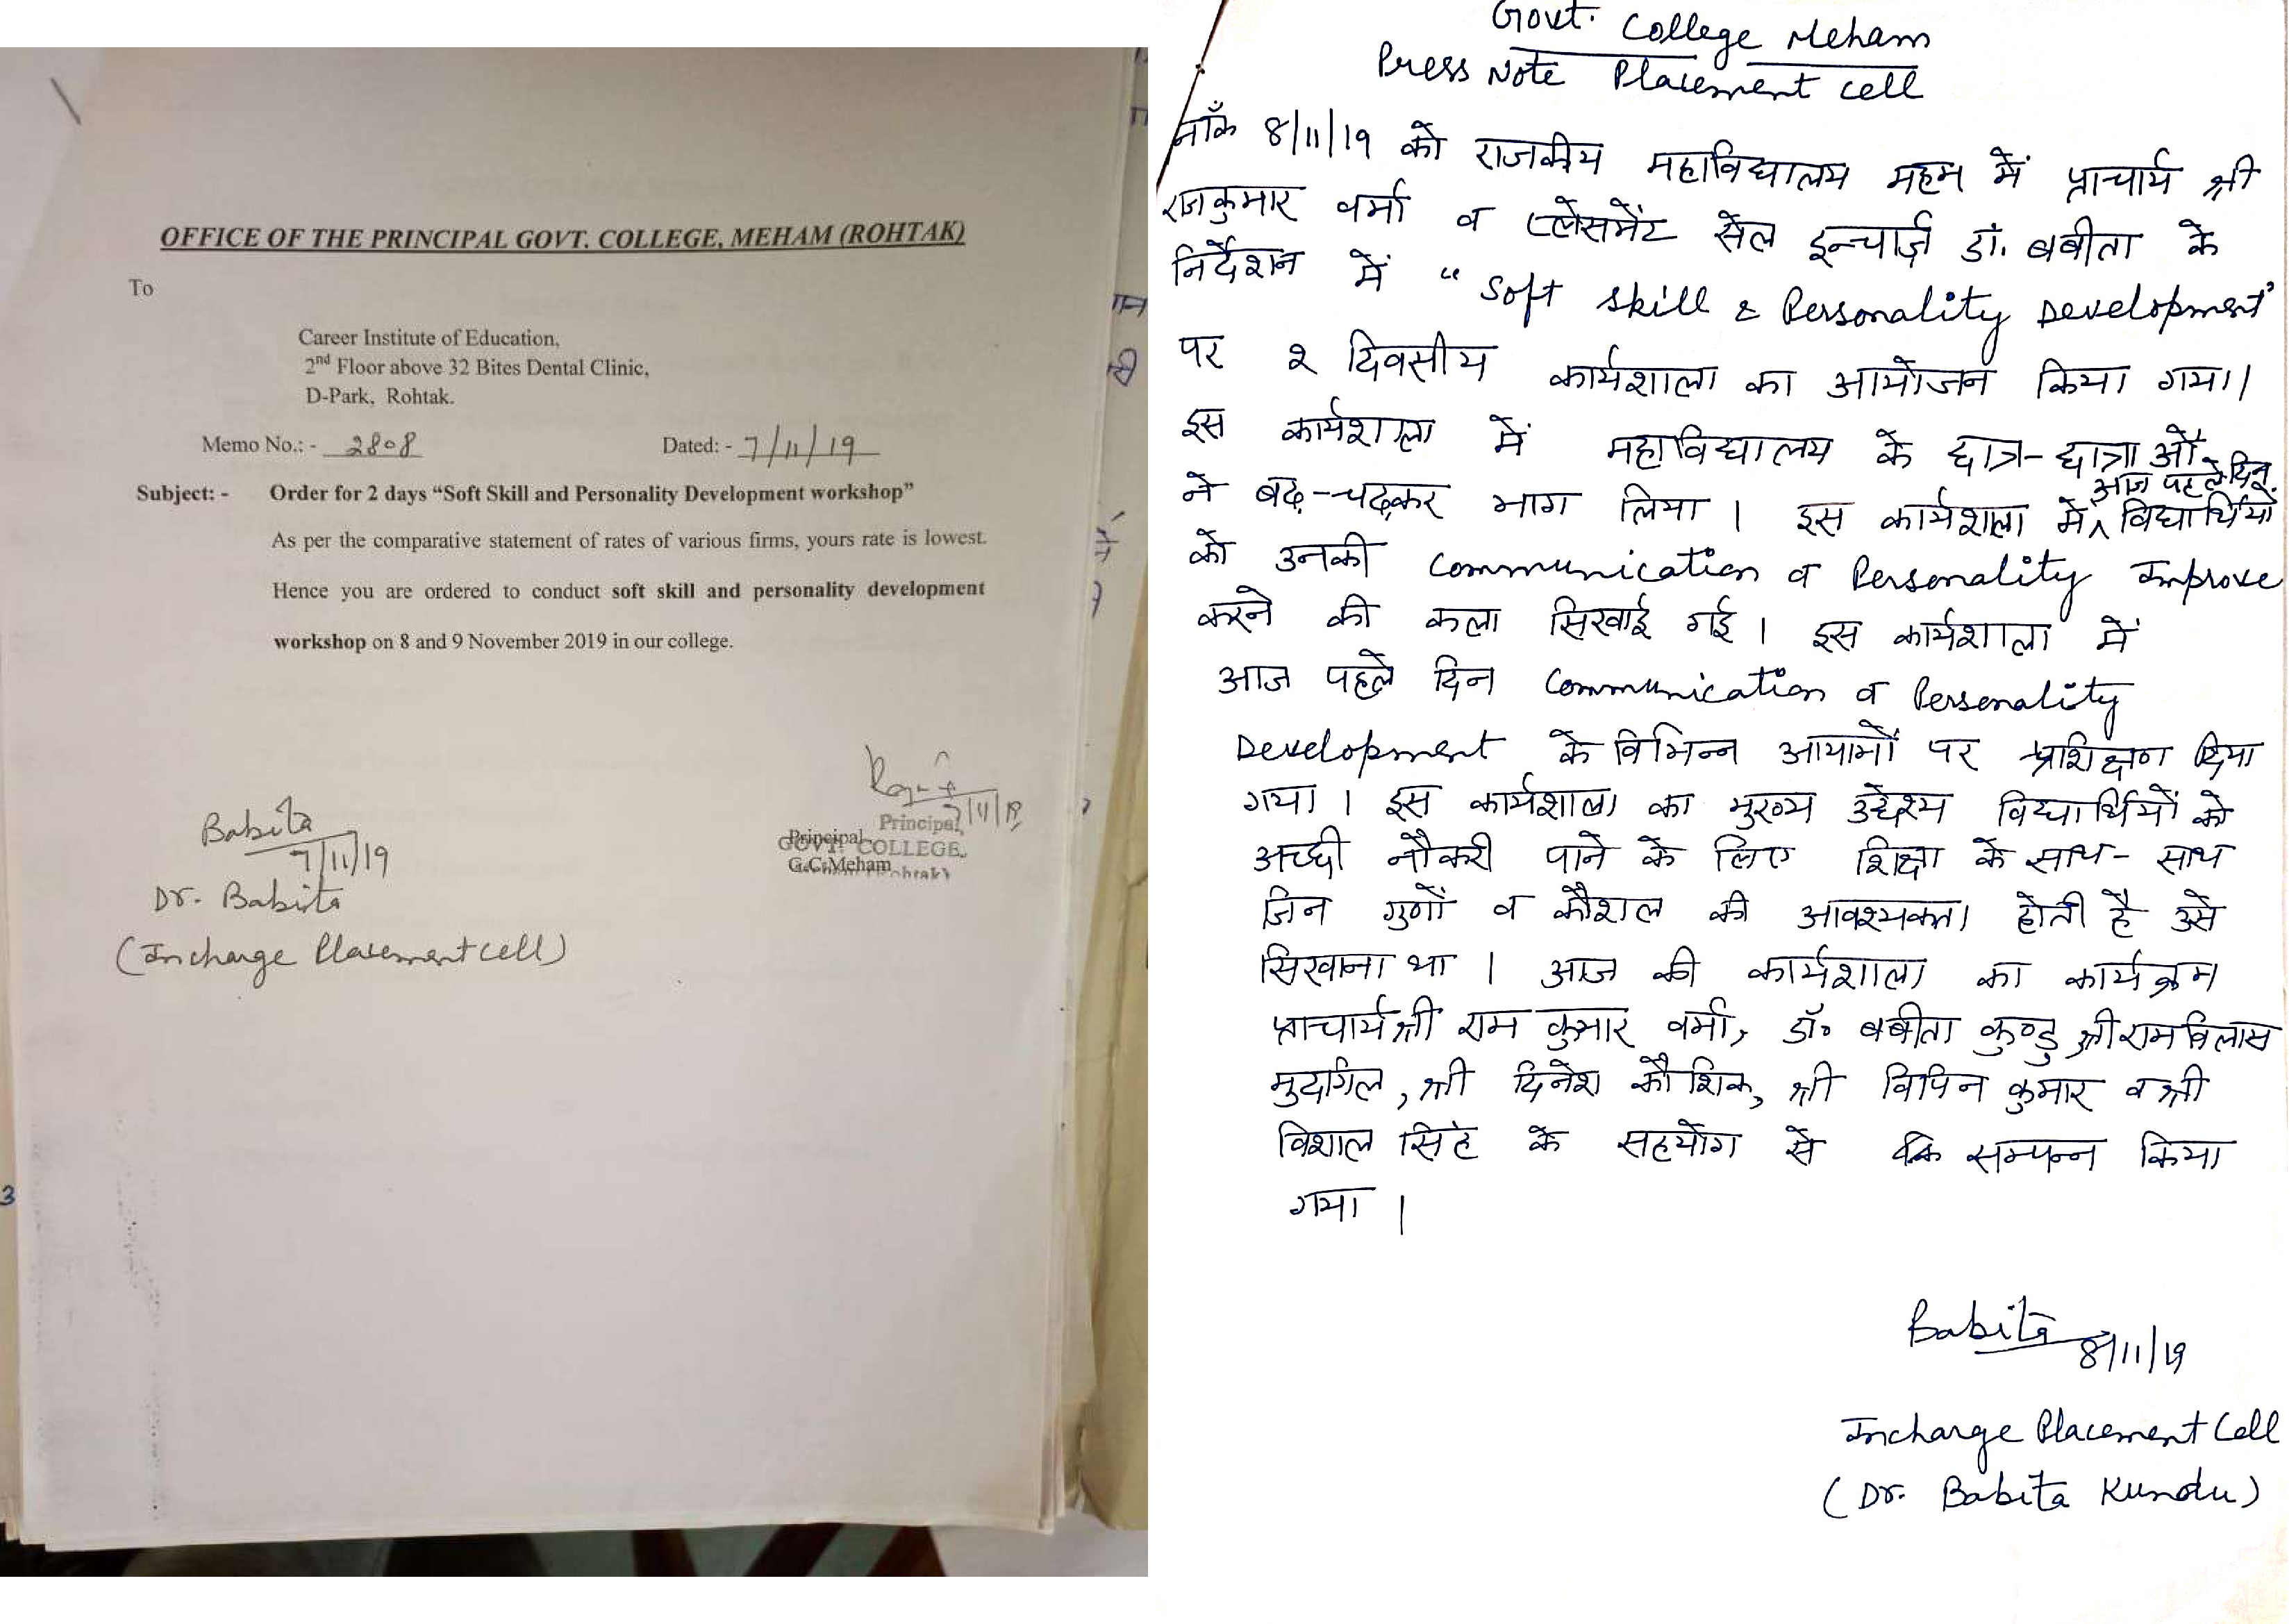 OFFICE OF THE PRINCIPAL GOVT. COLLEGE, MEHAM (ROHTAK)
To
Career Institute of Education,
2nd Floor above 32 Bites Dental Clinic,
D-Park, Rohtak.
Memo No.: - 2808 Dated: - 7/11/19
Subject: - Order for 2 days “Soft Skill and Personality Development workshop”
As per the comparative statement of rates of various firms, yours rate is lowest.
Hence you are ordered to conduct soft skill and personality development
workshop on 8 and 9 November 2019 in our college.
Babita
7/11/19
Dr. Babita
(Incharge Placement cell)
7/11/19
Principal
GOVT. COLLEGE,
Principal
G.C. Meham
Govt. College Meham
Press Note Placement cell
नाँक 8/11/19 को राजकीय महाविद्यालय महम में प्राचार्य श्री
राजकुमार वर्मा व प्लेसमेंट सेल इन्चार्ज़ डॉ. बबीता के
निर्देशन में “Soft skill & Personality Development”
पर २ दिवसीय कार्यशाला का आयोजन किया गया।
इस कार्यशाला में महाविद्यालय के छात्र-छात्राओं
ने बढ़-चढ़कर भाग लिया । इस कार्यशाला में आज पहले दिन विद्यार्थियों
को उनकी Communication व Personality Improve
करने की कला सिखाई गई । इस कार्यशाला में
आज पहले दिन Communication व Personality
Development के विभिन्न आयामों पर प्रशिक्षण दिया
गया । इस कार्यशाला का मुख्य उद्देश्य विद्यार्थियों को
अच्छी नौकरी पाने के लिए शिक्षा के साथ-साथ
जिन गुणों व कौशल की आवश्यकता होती है उसे
सिखाना था । आज की कार्यशाला का कार्यक्रम
प्राचार्य श्री राम कुमार वर्मा, डॉ० बबीता कुण्डु श्री रामविलास
मुदगिल, श्री दिनेश कौशिक, श्री विपिन कुमार व श्री
विशाल सिंह के सहयोग से सम्पन्न किया
गया ।
Babita
8/11/19
Incharge Placement Cell
(Dr. Babita Kundu)